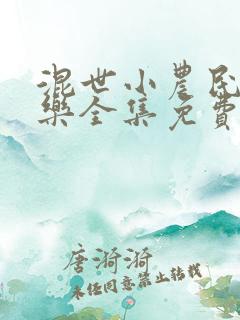 混世小農民
樂全集免費
唐漪漪
未经同意禁止转载